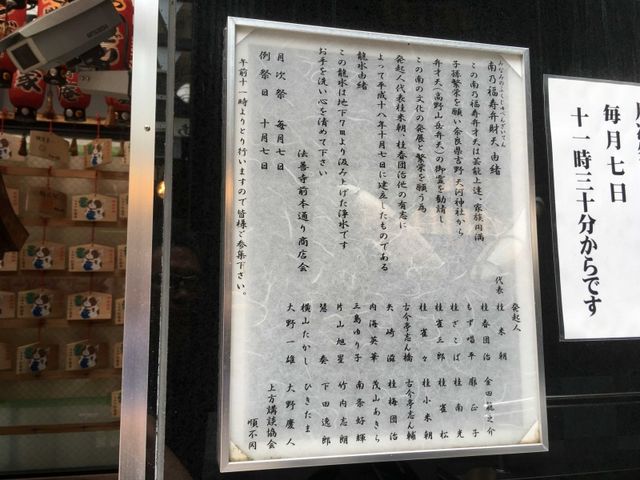 南乃福寿弁財天 由緒
この南の福寿弁才天は芸能上達、家族円満
子孫繁栄を願い奈良県吉野 天河神社から
弁才天(高野山岳弁天)の御霊を勧請し
この南の文化の発展と繁栄を願う為
発起人代表桂米朝、桂春団治他の有志に
よって平成十八年十月七日に建立したものである
龍水由緒
この龍水は地下7mより汲み上げた浄水です
お手を洗い心を清めて下さい
法善寺前本通り商店会
月次祭 毎月七日
例祭日 十月七日
午前十一時よりとり行いますので皆様ご参集下さい。
発起人
代表 桂米朝
桂春団治 金田龍之介
もず唱平 廓正子
桂ざこば 桂南光
桂雀三郎 桂雀松
桂雀々 桂小米朝
古今亭志ん橋 古今亭志ん輔
矢崎滋 桂梅團治
内海英華 茂山あきら
三島ゆり子 南条好輝
片山旭星 竹内志朗
慧奏 下田逸郎
横山たかし ひきたま
大野一雄 大野慶人
上方講談協会
順不同
毎月七日
十一時三十分からです
家